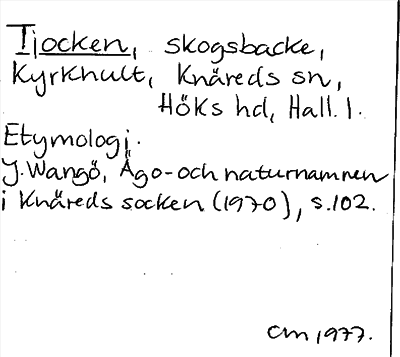 Tjocken, skogsbacke,
Kyrkhult, Knäreds sn,
Höks hd, Hall. l.
Etymologi.
J. Wangö, Ägo- och naturnamnen
i Knäreds socken (1970), s. 102.
CM 1977.